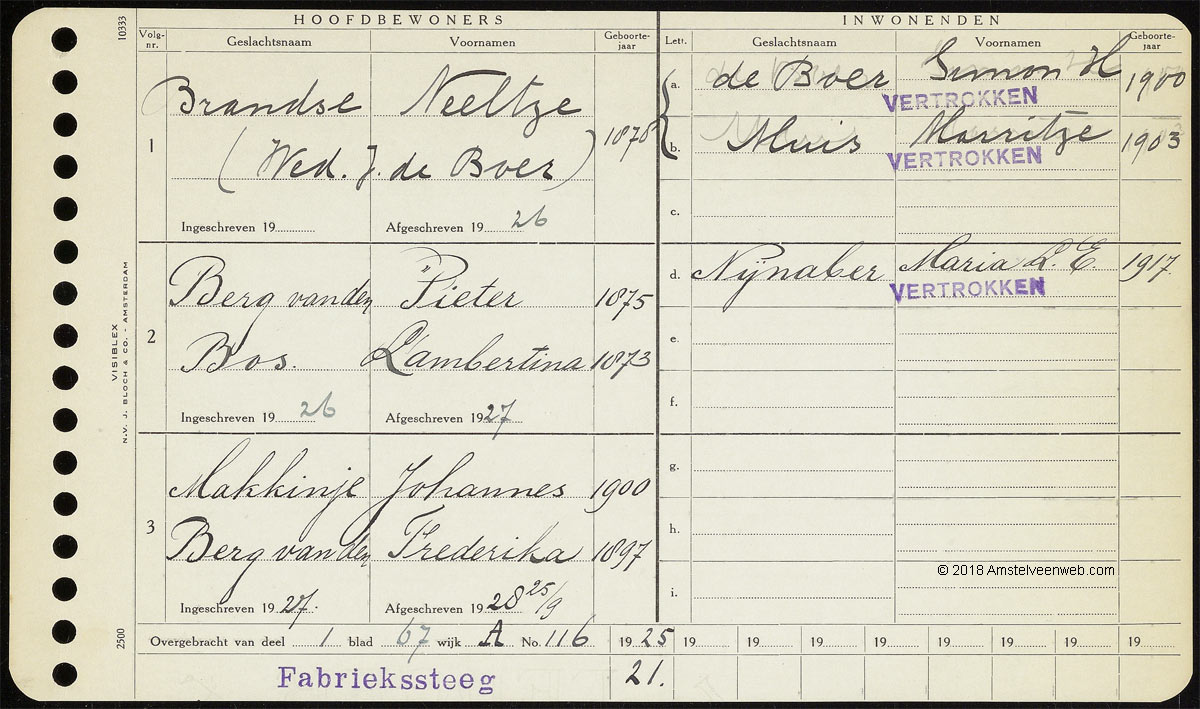 HOOFDBEWONERS
INWONENDEN
Volg-nr. Geslachtsnaam Voornamen Geboorte-jaar
Lett. Geslachtsnaam Voornamen Geboorte-jaar
1
Brandse Neeltze
(Wed. J. de Boer)
Ingeschreven 19 Afgeschreven 19 26
a. de Boer Simon H 1900
VERTROKKEN
b. Muis Marritze 1903
VERTROKKEN
c.
2
Berg van den Pieter 1875
Bos. Lambertina 1873
Ingeschreven 19 26 Afgeschreven 19 27
d. Nijnaber Maria L. E. 1917
VERTROKKEN
e.
f.
3
Makkinje Johannes 1900
Berg van den Frederika 1897
Ingeschreven 19 27. Afgeschreven 19 28 25/9
g.
h.
i.
© 2018 Amstelveenweb.com
Overgebracht van deel 1 blad 67 wijk A No. 116 19 25 19 19 19 19 19 19 19 19
Fabriekssteeg 21.
10333
VISIBLEX
N.V. J. BLOCH & CO. - AMSTERDAM
2500